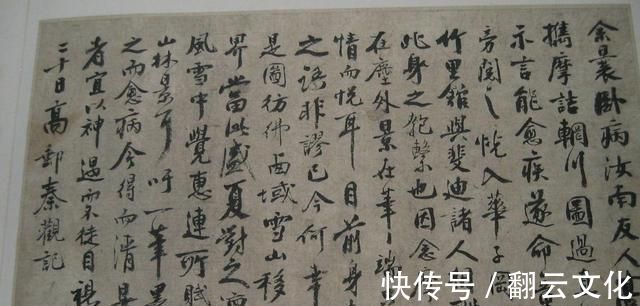 余曩卧病汝南友人
攜摩詰輞川圖過
示言能愈疾遂命
旁閱之恍入華子岡
竹里館與斐迪諸人
此身之匏繫也因念
在塵外景在筆端
情而悅耳目前身
之語非謬已今何幸
是圖彷彿西域雪山移
界當此盛夏對之凛
風雪中覺惠連所賦
山林景耳吁一筆墨
之而愈病今得而清暑
者宜以神遇而不徒目視
二十日高郵秦觀記
快传号 / 翻云文化